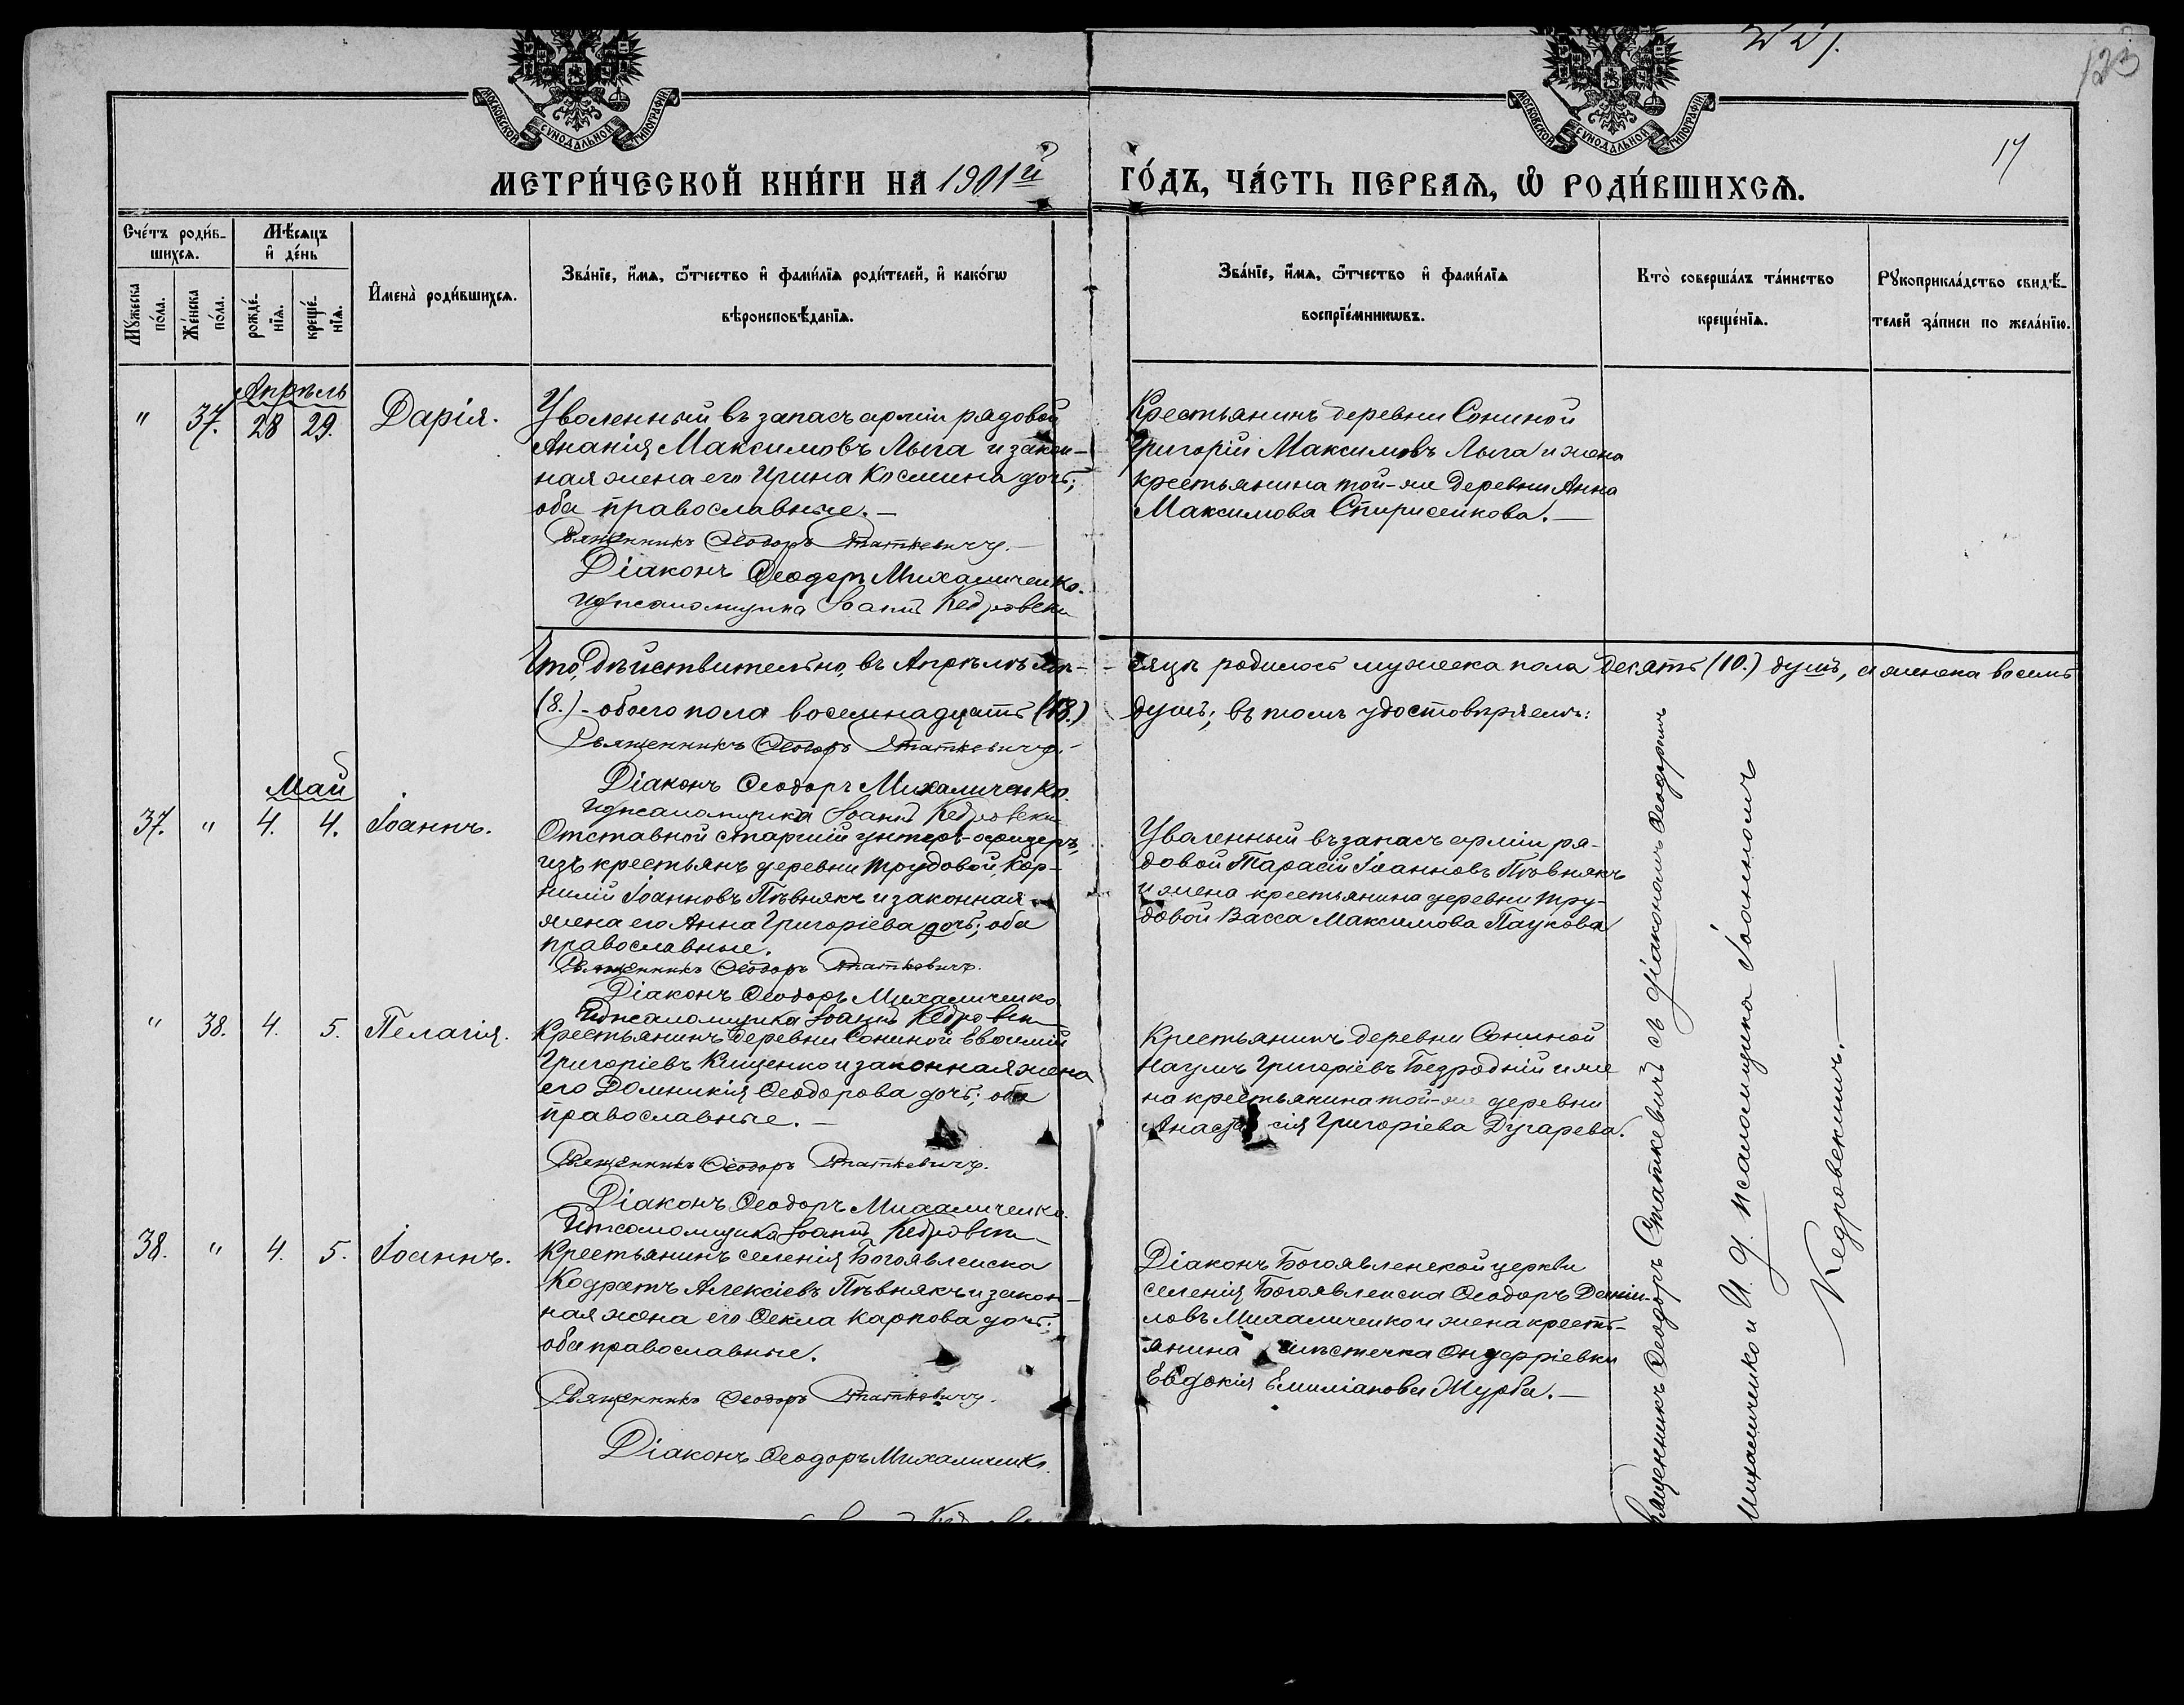 221.
123
МОСКОВСКОЙ СѴНОДАЛЬНОЙ ТИПОГРАФІИ
МОСКОВСКОЙ СѴНОДАЛЬНОЙ ТИПОГРАФІИ
17
МЕТРИ́ЧЕСКОЙ КНИ́ГИ НА 1901й ГО́ДЪ, ЧА́СТЬ ПЕРВАѦ, Ѡ҆ РОДИ́ВШИХСѦ.
Сче́тъ роди́в-
шихсѧ.
Мѣ́сѧцъ
и҆ де́нь
Мꙋ́жеска
по́ла.
Же́нска
по́ла.
рожде́-
нїѧ.
креще́-
нїѧ.
И҆мена̀ роди́вшихсѧ.
Зва́нїе, и҆́мѧ, ѻ҆́тчество и҆ фами́лїѧ роди́телей, и҆ како́гѡ
вѣроисповѣ́данїѧ.
Зва́нїе, и҆́мѧ, ѻ҆́тчество и҆ фами́лїѧ
воспрїе́мникѡвъ.
Кто̀ соверша́лъ та́инство
креще́нїѧ.
Рꙋкоприкла́дство свидѣ́-
телей за́писи по жела́нїю.
Апрѣль
" 37. 28 29. Дарія.
Уволенный въ запасъ арміи рядовой
Ананія Максимовъ Лыга и закон-
ная жена его Ирина Космина дочь;
оба православные. —
Священникъ Ѳеодоръ Статкевичъ. —
Діаконъ Ѳеодоръ Михаличенко.
И.д. псаломщика Іоаннъ Кедровскій
Крестьянинъ деревни Сониной
Григорій Максимовъ Лыга и жена
крестьянина той-же деревни Анна
Максимова Спирисенкова. —
Что дѣйствительно, въ Апрѣлѣ мѣ- -сяцѣ родилось мужеска пола десять (10.) душъ, а женска восемь
(8.) - обоего пола восемнадцать (18.) душъ; въ томъ удостовѣряемъ:
Священникъ Ѳеодоръ Статкевичъ. —
Діаконъ Ѳеодоръ Михаличенко.
И.д. псаломщика Іоаннъ Кедровскій
Май
37. " 4. 4. Іоаннъ.
Отставной старшій унтеръ-офицеръ,
изъ крестьянъ деревни Трудовой, Кор-
нилій Іоанновъ Пѣвнякъ и законная
жена его Анна Григоріева дочь; оба
православные.
Священникъ Ѳеодоръ Статкевичъ.
Діаконъ Ѳеодоръ Михаличенко
И.д. псаломщика Іоаннъ Кедровскій
Уволенный въ запасъ арміи ря-
довой Тарасій Іоанновъ Пѣвнякъ
и жена крестьянина деревни Тру-
довой Васса Максимова Паукова
" 38. 4. 5. Пелагія.
Крестьянинъ деревни Сониной Евѳимій
Григоріевъ Кищенко и законная жена
его Домникія Ѳеодорова дочь; оба
православные. —
Священникъ Ѳеодоръ Статкевичъ.
Діаконъ Ѳеодоръ Михаличенко
И.д. псаломщика Іоаннъ Кедровскій
Крестьянинъ деревни Сониной
Наумъ Григоріевъ Безродній и же
на крестьянина той-же деревни
Анастасія Григоріева Дугарева.
38. " 4. 5. Іоаннъ.
Крестьянинъ селенія Богоявленска
Кодратъ Алексіевъ Пѣвнякъ и закон-
ная жена его Ѳекла Карпова дочь;
оба православные.
Священникъ Ѳеодоръ Статкевичъ.
Діаконъ Ѳеодоръ Михаличенко
Діаконъ Богоявленской церкви
селенія Богоявленска Ѳеодоръ Даніи-
ловъ Михаличенко и жена кресть-
янина мѣстечка
Евдокія Емиліанова Журба. —
Священникъ Ѳеодоръ Статкевичъ съ Діакономъ Ѳеодоромъ
Михаличенко и И. д. псаломщика Іоанномъ
Кедровскимъ. —